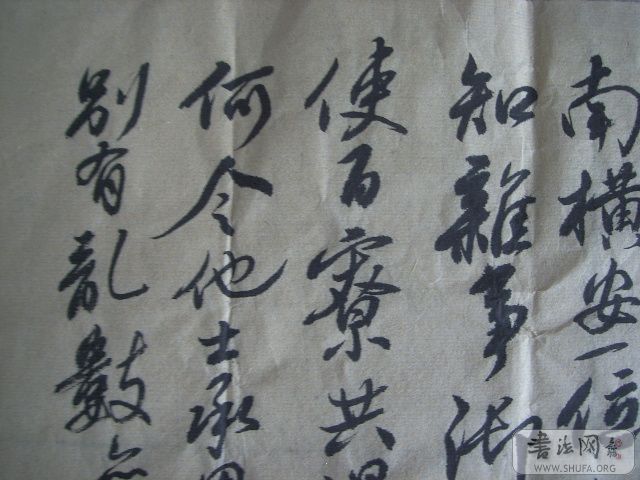 南橫安一位
知雜事御
使百寮共
何令他士承
別有亂數
書法网
WWW.SHUFA.ORG